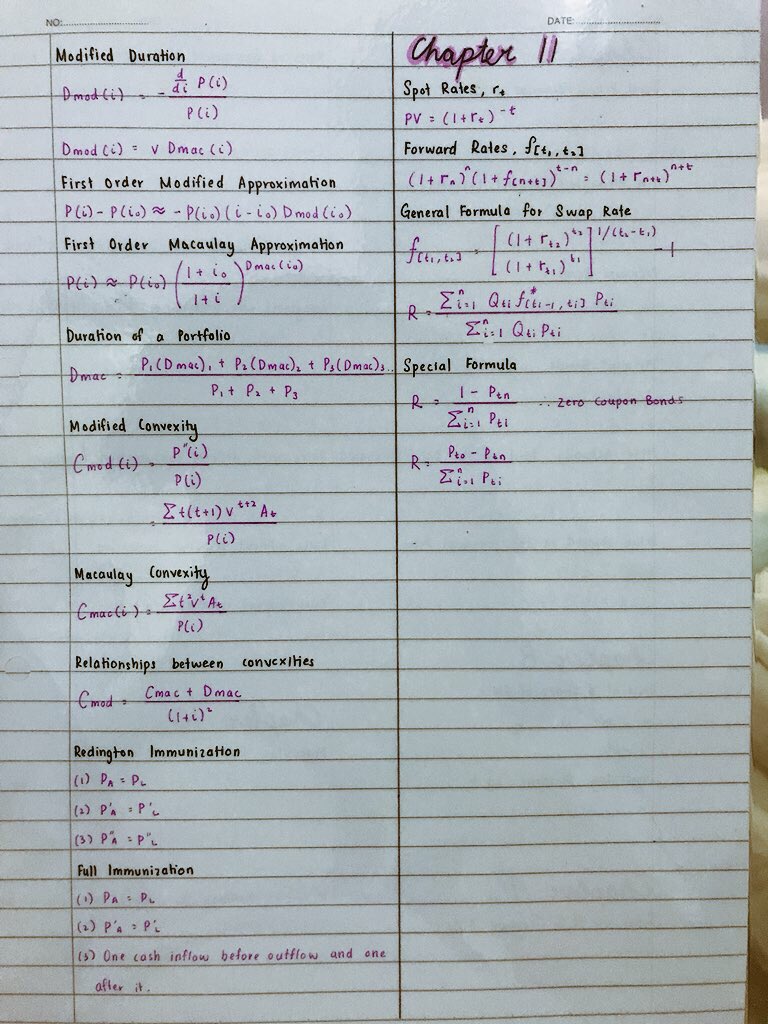 NO:
DATE:
Modified Duration
Dmod(i) = - d/di P(i) / P(i)
Dmod(i) = v Dmac(i)
First Order Modified Approximation
P(i) - P(i₀) ≈ - P(i₀)(i - i₀) Dmod(i₀)
First Order Macaulay Approximation
P(i) ≈ P(i₀) ( 1 + i₀ / 1 + i )^Dmac(i₀)
Duration of a Portfolio
Dmac = P₁(Dmac)₁ + P₂(Dmac)₂ + P₃(Dmac)₃... / P₁ + P₂ + P₃
Modified Convexity
Cmod(i) = P"(i) / P(i)
= Σt(t+1)v^t+2 At / P(i)
Macaulay Convexity
Cmac(i) = Σt²v^t At / P(i)
Relationships between convexities
Cmod = Cmac + Dmac / (1+i)²
Redington Immunization
(1) PA = PL
(2) P'A = P'L
(3) P"A = P"L
Full Immunization
(1) PA = PL
(2) P'A = P'L
(3) One cash inflow before outflow and one
after it.
Chapter 11
Spot Rates, rt
PV = (1+rt)^-t
Forward Rates, f[t₁,t₂]
(1+rn)^n (1+f[n+t])^t-n = (1+rn+t)^n+t
General Formula for Swap Rate
f[t₁,t₂] = [ (1+rt₂)^t₂ / (1+rt₁)^t₁ ]^1/(t₂-t₁) - 1
R = Σⁿi=1 Qti f*[ti-1, ti] Pti / Σⁿi=1 Qti Pti
Special Formula
R = 1 - Ptn / Σⁿi=1 Pti ... Zero Coupon Bonds
R = Pto - Ptn / Σⁿi=1 Pti